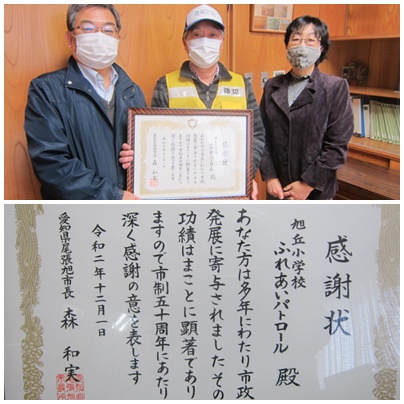 感謝状
旭丘小学校
ふれあいパトロール 殿
あなた方は多年にわたり市政
発展に寄与されましたその
功績はまことに顕著であり
ますので市制五十周年にあたり
深く感謝の意を表します
令和二年十二月一日
愛知県尾張旭市長 森 和実